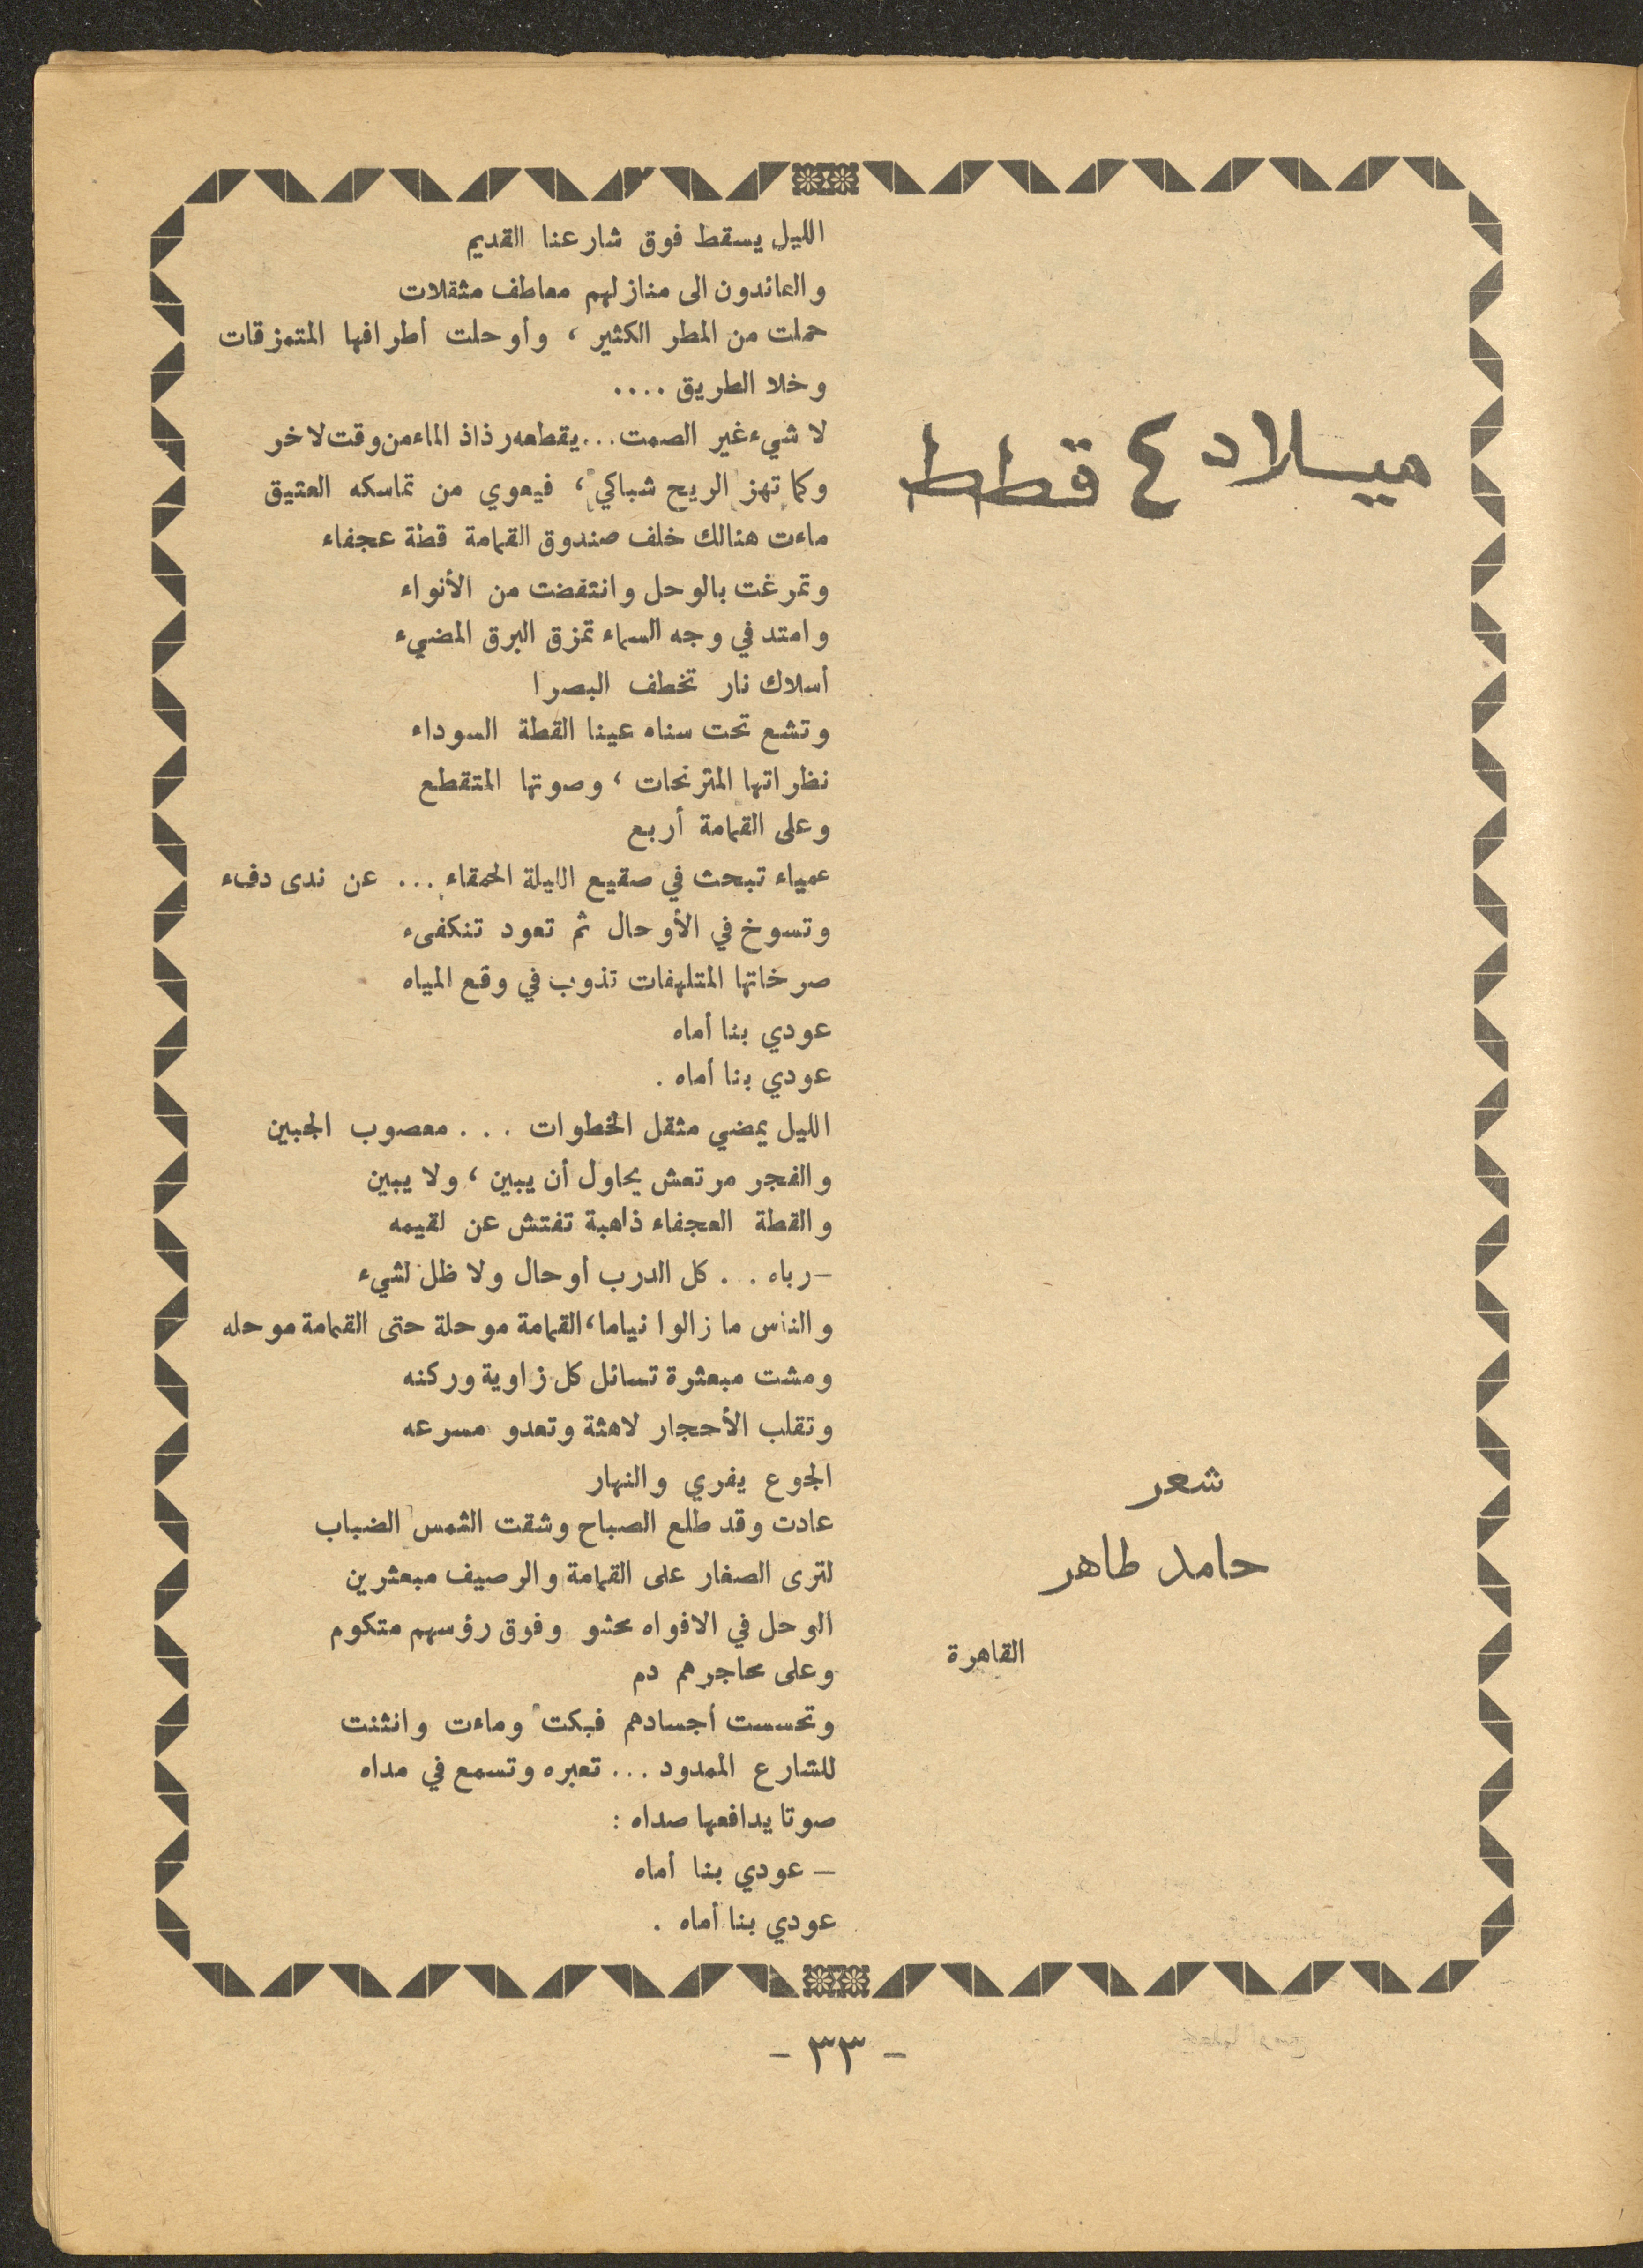 ميلاد ٤ قطط
شعر
حامد طاهر
القاهرة
الليل يسقط فوق شارعنا القديم
والعائدون الى منازلهم معاطف مثقلات
حملت من المطر الكثير ، وأوحلت أطرافها المتمزقات
وخلا الطريق ....
لا شيء غير الصمت... يقطعه رذاذ الماء من وقت لاخر
وكما تهز الريح شباكي ، فيعوي من تماسكه العتيق
ماءت هنالك خلف صندوق القمامة قطة عجفاء
وتمرغت بالوحل وانتفضت من الأنواء
وامتد في وجه السماء تمزق البرق المضيء
أسلاك نار تخطف البصرا
وتشع تحت سناه عينا القطة السوداء
نظراتها المترنحات ، وصوتها المتقطع
وعلى القمامة أربع
عمياء تبحث في صقيع الليلة الحمقاء ... عن ندى دفء
وتسوخ في الأوحال ثم تعود تنكفىء
صرخاتها المتلهفات تذوب في وقع المياه
عودي بنا أماه
عودي بنا أماه .
الليل يمضي مثقل الخطوات ... معصوب الجبين
والفجر مرتعش يحاول أن يبين ، ولا يبين
والقطة العجفاء ذاهبة تفتش عن لقيمه
– رباه ... كل الدرب أوحال ولا ظل لشيء
والناس ما زالوا نياما ، القمامة موحلة حتى القمامة موحله
ومشت مبعثرة تسائل كل زاوية وركنه
وتقلب الأحجار لاهثة وتعدو مسرعه
الجوع يفري والنهار
عادت وقد طلع الصباح وشقت الشمس الضباب
لترى الصغار على القمامة والرصيف مبعثرين
الوحل في الافواه محشو وفوق رؤسهم متكوم
وعلى محاجرهم دم
وتحسست أجسادهم فبكت وماءت وانثنت
للشارع الممدود ... تعبره وتسمع في مداه
صوتا يدافعها صداه :
– عودي بنا أماه
عودي بنا أماه .
- ٣٣ -